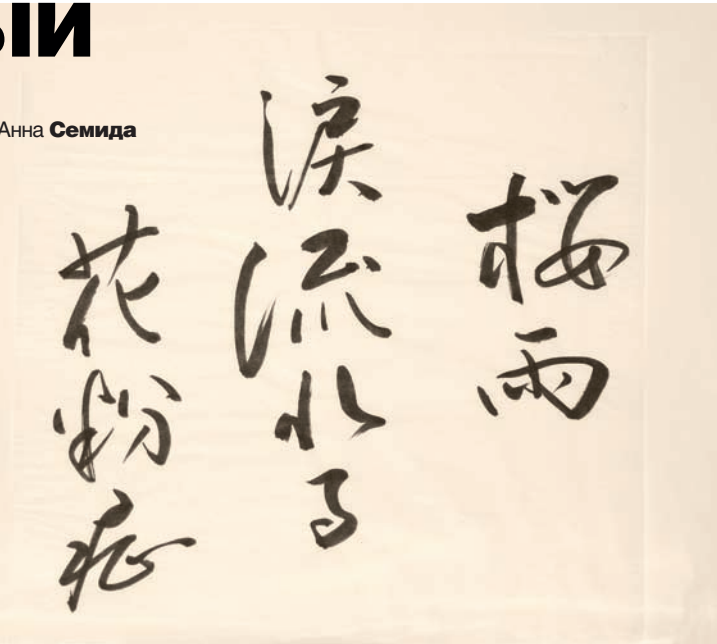 ый
Анна Семида
桜雨
涙流れる
花粉症